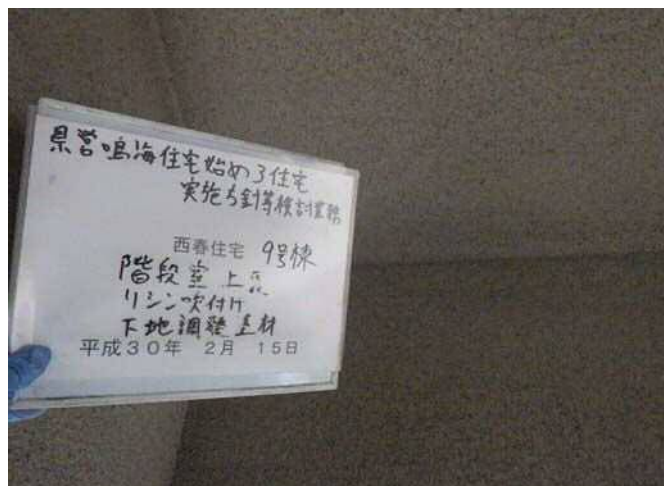 県営鳴海住宅始め3住宅
実施方針等検討業務
西春住宅 9号棟
階段室 上裏
リシン吹付け
下地調整塗材
平成30年 2月 15日